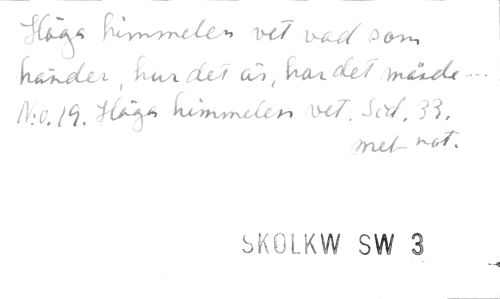 Höga himmelen vet vad som
händer, hur det är, har det månde...
No. 19. Höga himmelen vet. Sid. 33.
met not.
SKOLKW SW 3